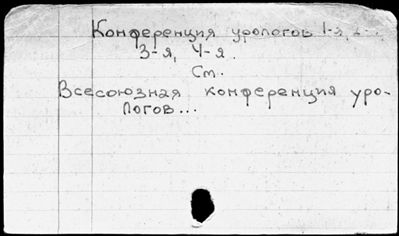 Конференция урологов 1-я, 2...
3-я, 4-я.
См.
Всесоюзная конференция уро-
логов...